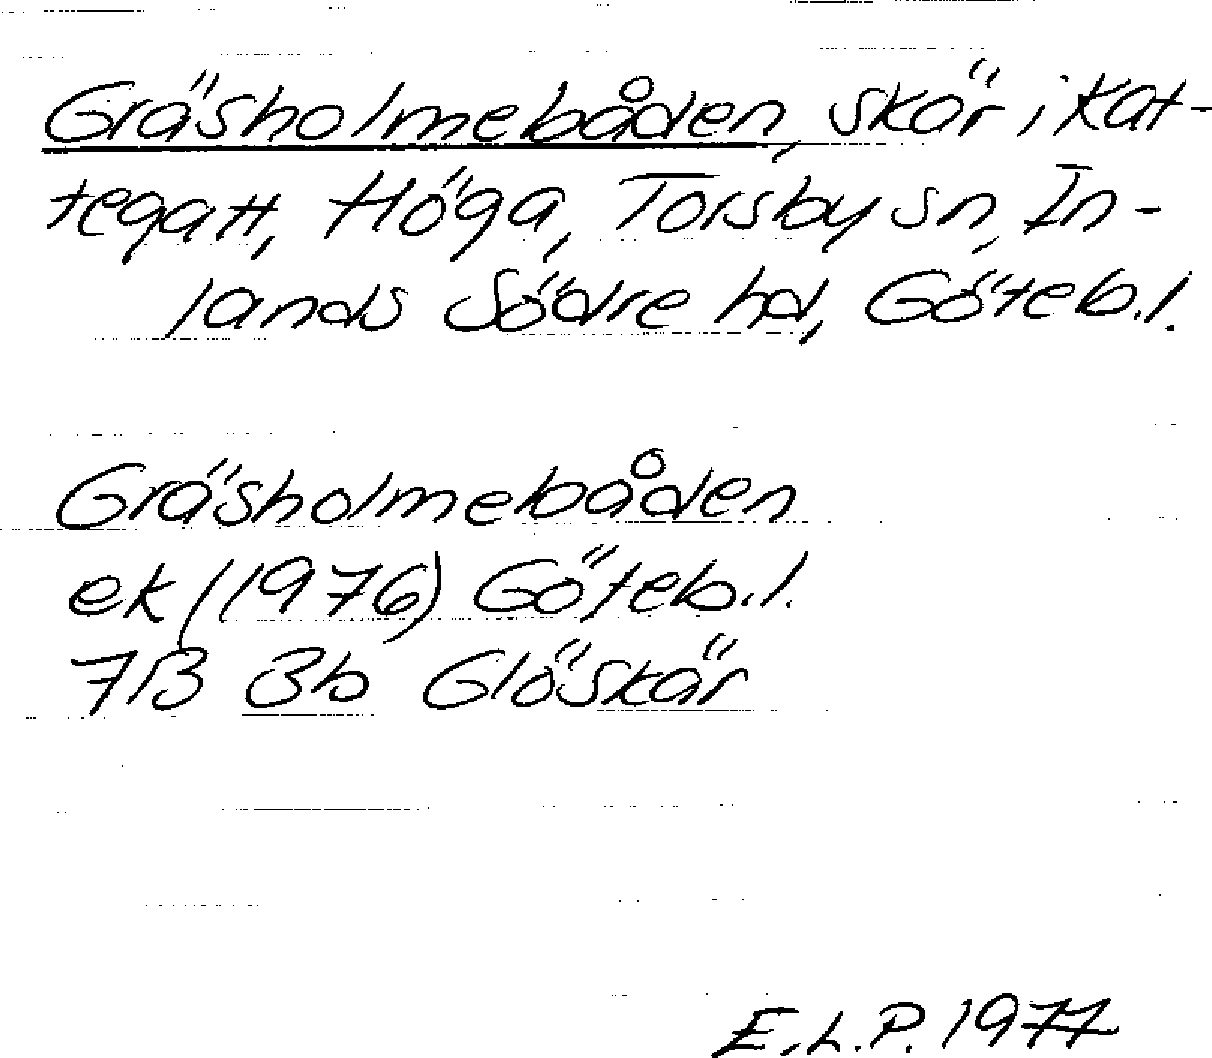 Gräsholmebåden, skär i Kat-
tegatt, Höga, Torsby sn, In-
lands Södre hd, Göteb.l.
Gräsholmebåden
ek (1976) Göteb.l.
7B 3b Glöskär
E.L.P. 1977